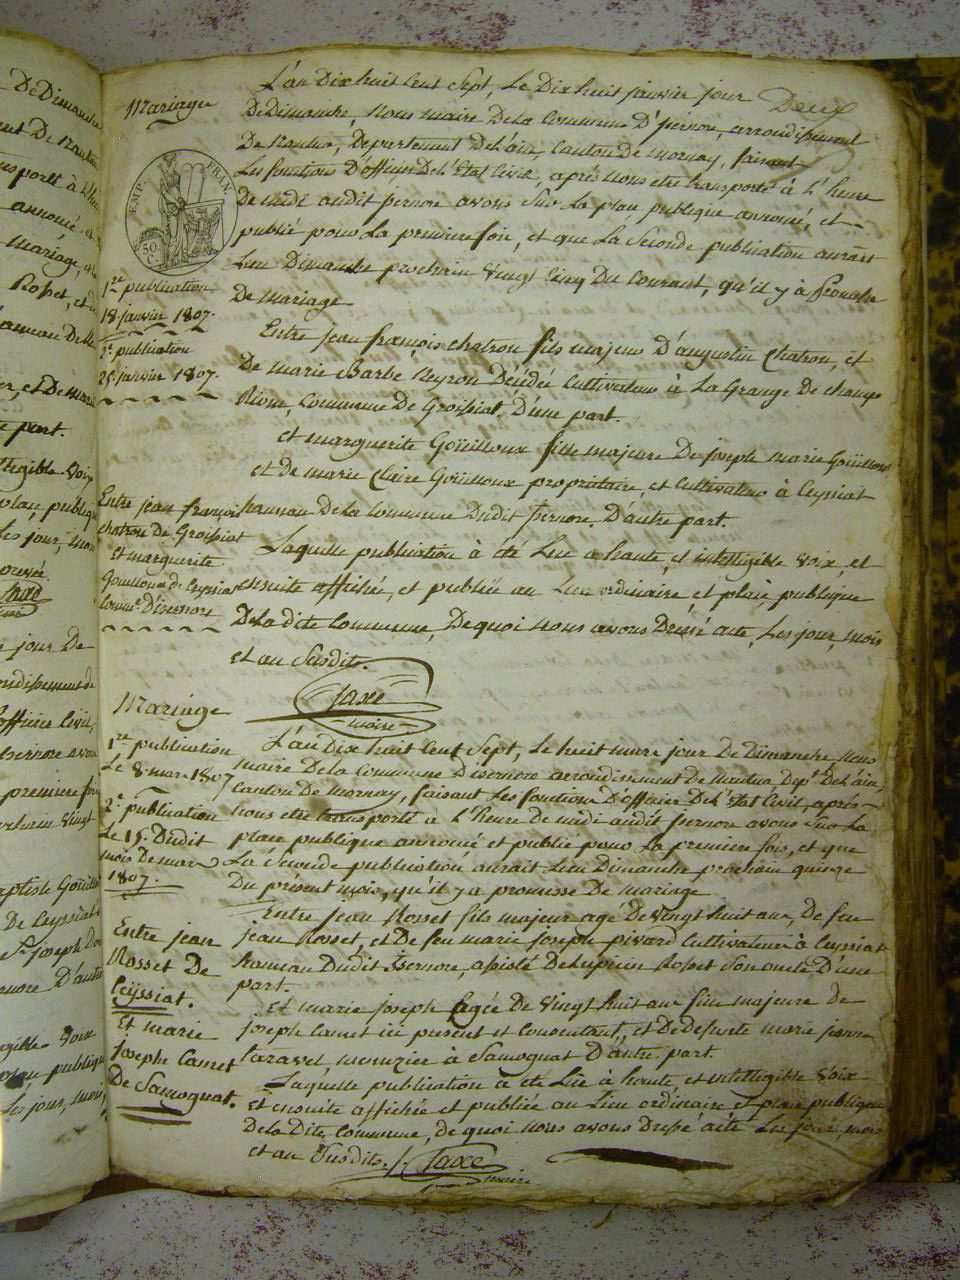 Mariage
EMP. FRAN.
50 C.
1re publication
18 janvier 1807.
2e publication
25 janvier 1807.
Entre jean françois
chatron de Groissiat
et marguerite
Goüilloux de Ceyssiat
comme. D'isernore
L'an Dix huit Cent Sept, Le Dix huit janvier jour Deux
De Dimanche, Nous maire De La Commune D'jsernore, arrondissement
De Nantua, Departement De L'ain, Canton De mornay, faisant
Les fonctions D'officier De L'Etat Civil, après Nous etre transporté à L'heure
De midi audit jsernore avons Sur La place publique annoncé, et
publié pour La premiere fois, et que La Seconde publication aurait
Lieu Dimanche prochain Vingt Cinq Du Courant, qu'il y à promesse
De mariage
Entre Jean françois chatron fils majeur D'augustin Chatron, et
De marie Barbe Neyron Décédée Cultivateur à La Grange De champ
Rione, Commune De Groissiat, D'une part.
et marguerite Goüilloux fille majeure De joseph marie Goüilloux
et de marie Claire Goüilloux propriétaire, et Cultivateur à Ceyssiat
hameau De La Commune Dudit jsernore, D'autre part.
Laquelle publication à été Lue a haute, et intelligible Voix, et
ensuite affichée, et publiée au Lieu ordinaire et place publique
De La dite Commune, De quoi Nous avons Dressé acte, Les jour, mois
et an Susdits.
Taxé
maire
Mariage
1re publication
Le 8 mars 1807
2e publication
Le 15 Dudit
mois De mars
1807.
Entre jean
Rosset De
Ceÿssiat.
Et marie
Joseph Camet
De Samognat.
L'an Dix huit Cent Sept, Le huit mars jour De Dimanche Nous
maire De La Commune D'isernore arrondissement De Nantua Dept. De L'ain,
Canton De Mornay, faisant Les fonctions D'officier De L'Etat Civil, après
nous etre transporté a L'heure De midi audit jsernore avons Sur La
place publique annoncé et publié pour La premiere fois, et que
La Seconde publication aurait Lieu Dimanche prochain quinze
Du présent mois, qu'il y a promesse De mariage
Entre Jean Rosset fils majeur agé De Vingt huit ans, De feu
jean Rosset, et De feu marie joseph pivard Cultivateur à Ceyssiat
hameau Dudit Isernore, assisté De Lupicin Rosset Son oncle D'une
part.
Et marie joseph Agée De Vingt huit ans fille majeure De
joseph Camet ici present et Consentant, et De défunte marie jeanne
taravel, menuzier à Samognat D'autre part.
Laquelle publication a été Lue à haute, et intelligible Voix
et ensuite affichée et publiée au Lieu ordinaire et place publique
De La Dite Commune, de quoi nous avons Dressé acte Les jour, mois
et an Susdits.
Taxé
maire